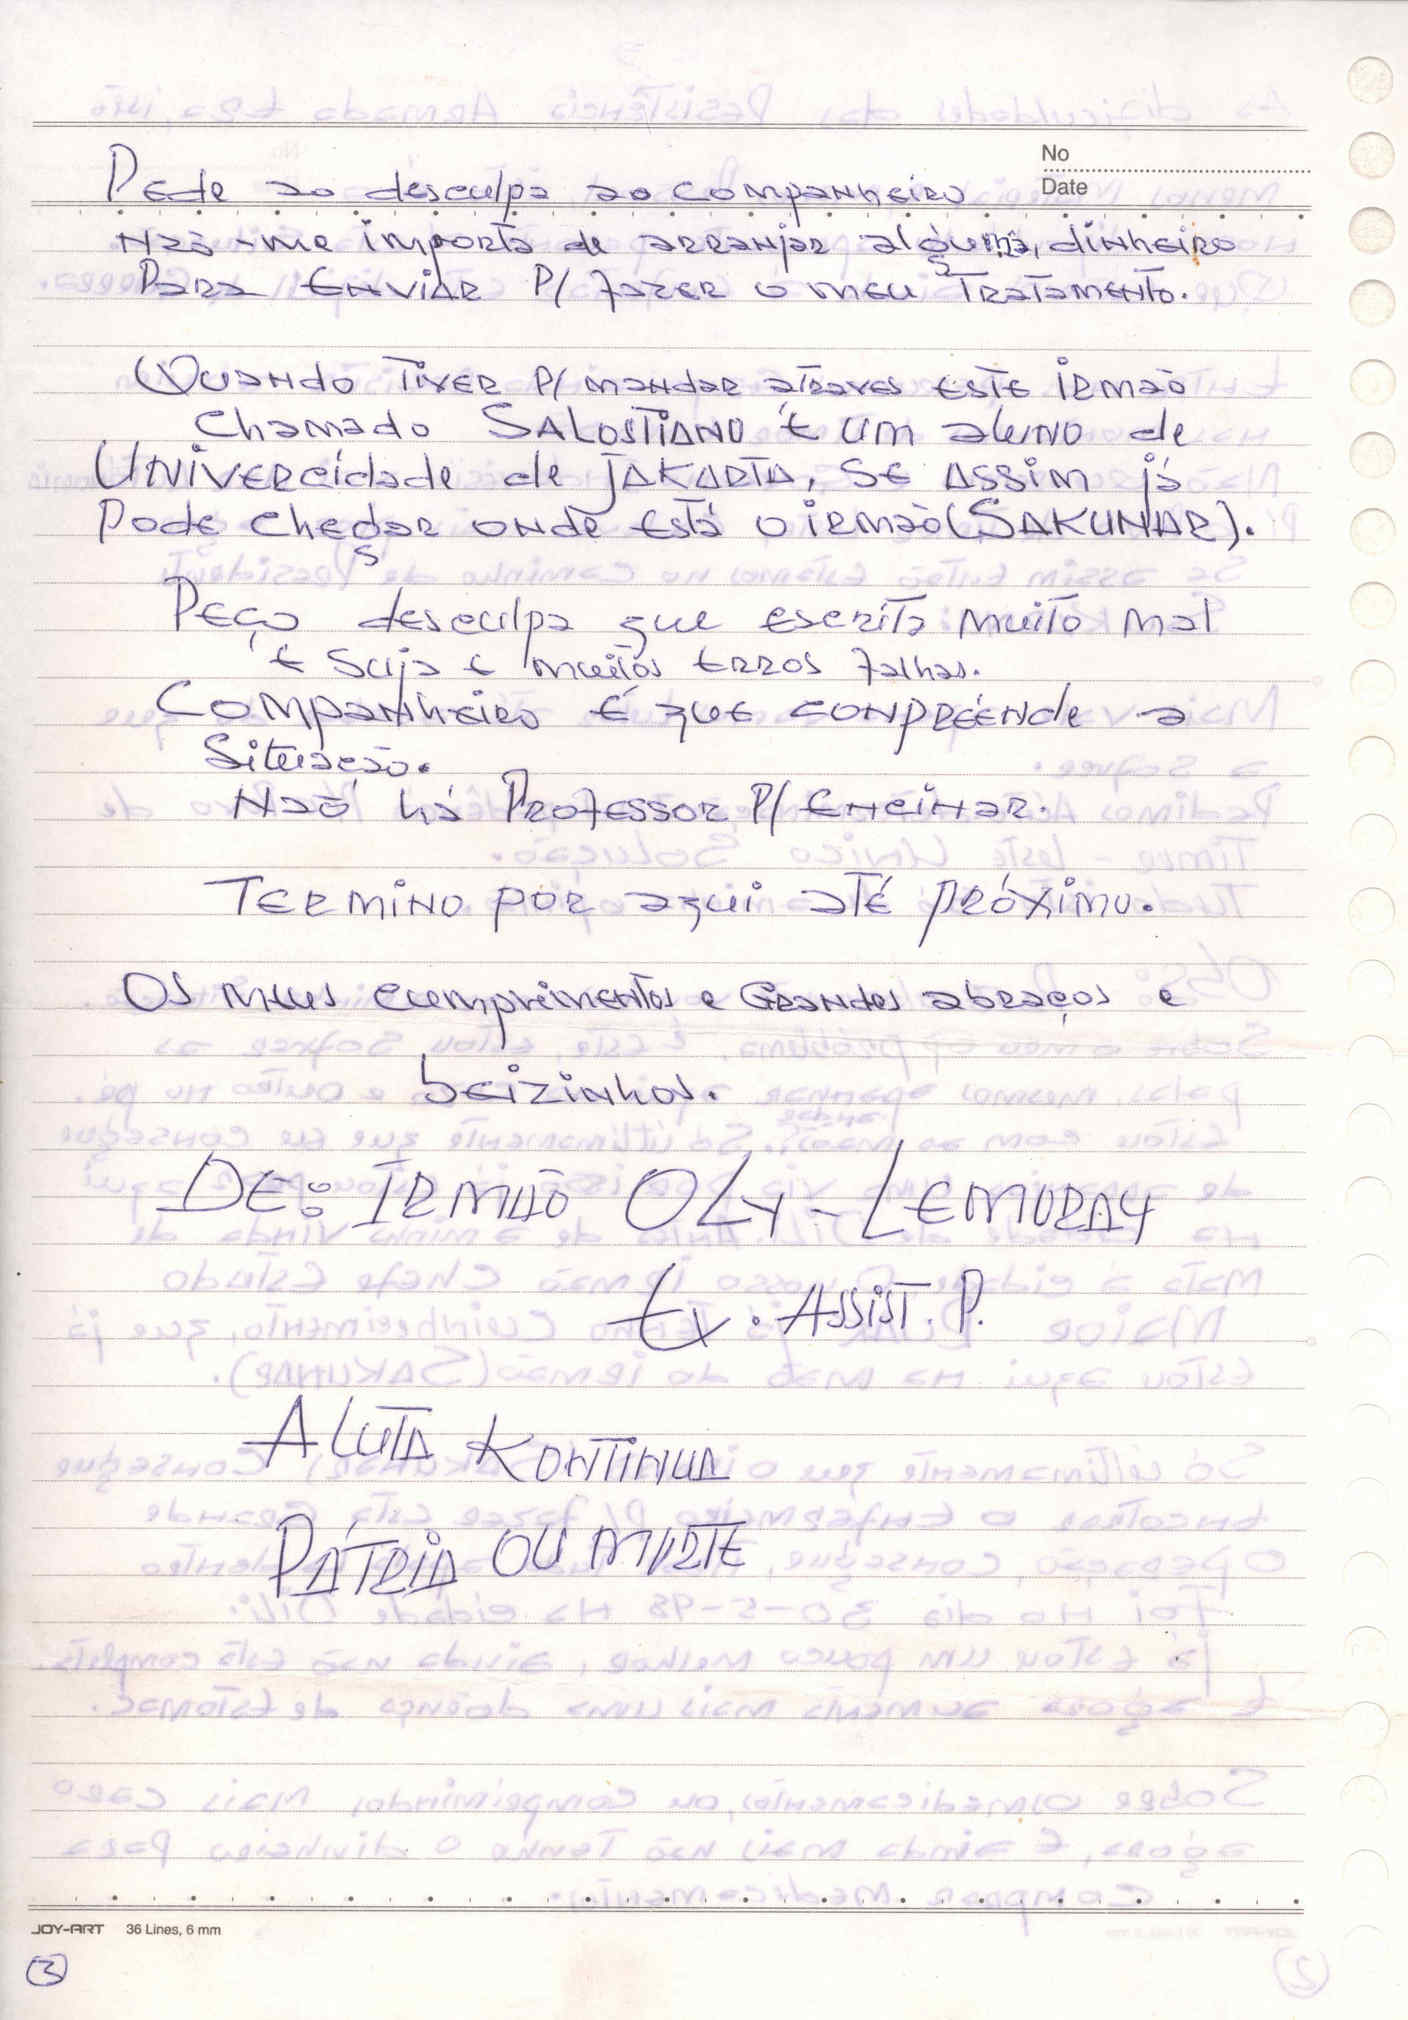 No
Date
Pede ao desculpa ao companheiro
não-me importa de arranjar alguma, dinheiro
Para Enviar P/ fazer o meu Tratamento.
Quando Tiver P/ mandar atraves este irmão
chamado SALOSTIANO é um aluno de
Univercidade de JAKARTA, se assim já
Pode chegar onde está o irmão (SAKUNAR).
Peço desculpa que escrita muito mal
é suja e muitos erros falhas.
Companheiro é que conpréende a
Situação.
Não há Professor P/ Encinar.
Termino por aqui até próximo.
Os meus cumprimentos e Grandes abraços e
beizinhos.
DE: IRMÃO OLY-LEMORAY
Ex. Assist. P.
A LUTA KONTINUA
PÁTRIA OU MORTE
JOY-ART 36 Lines, 6 mm
3